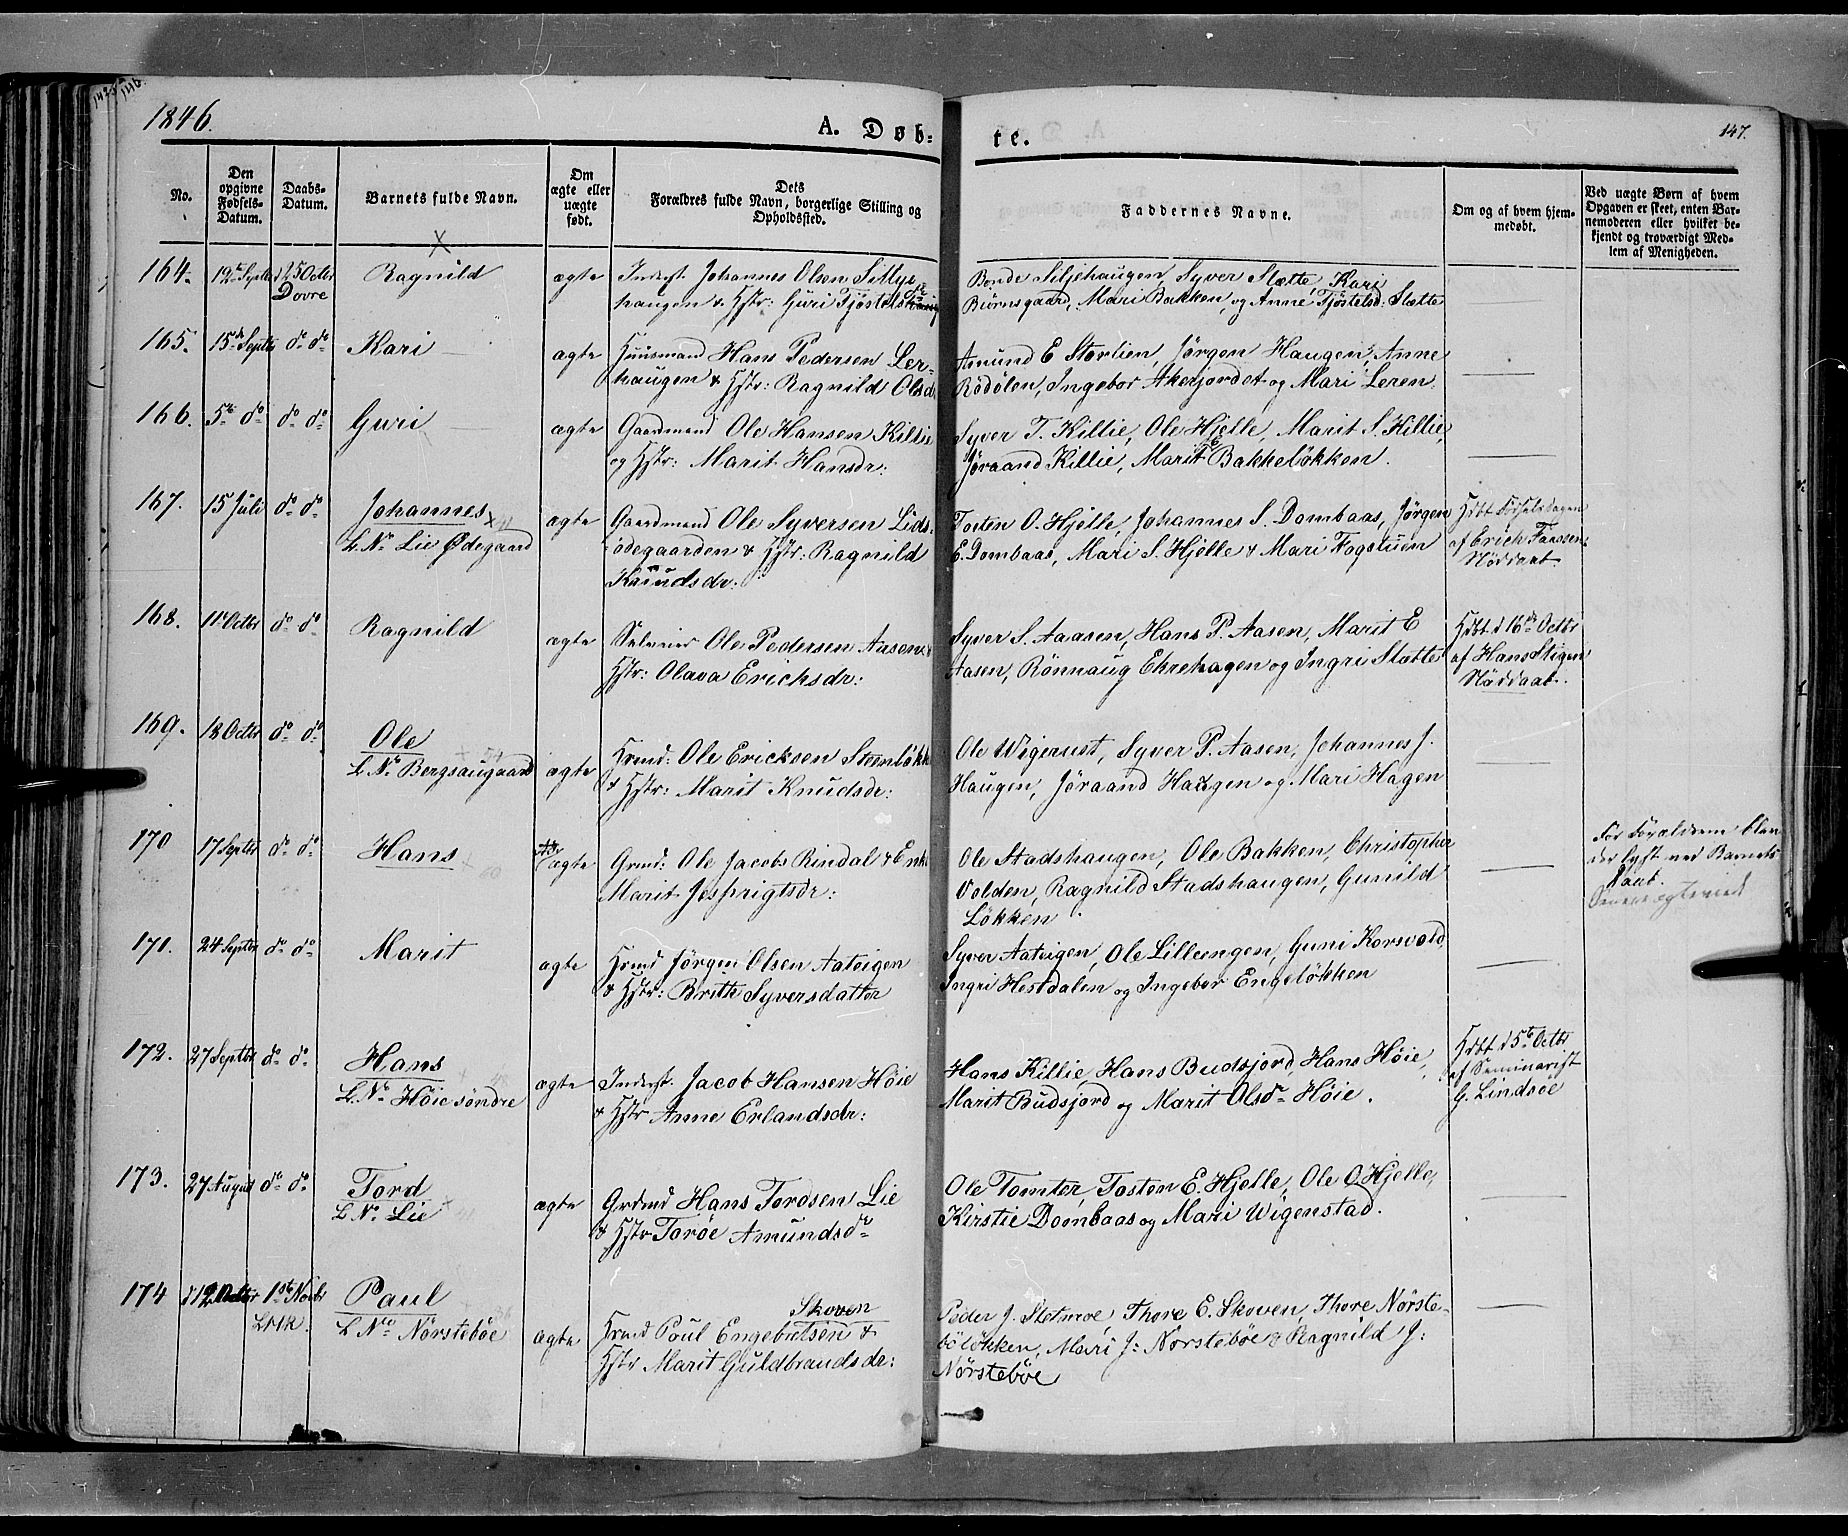 1846.
A. Døb-
te.
147.
No.
Den opgivne Fødsels-Datum.
Daabs-Datum.
Barnets fulde Navn.
Om ægte eller uægte født.
Dets Forældres fulde Navn, borgerlige Stilling og Opholdssted.
Faddernes Navne.
Om og af hvem hjem-medøbt.
Ved uægte Børn af hvem Opgaven er skeet, enten Bar-nemoderen eller hvilket be-kjendt og troværdigt Med-lem af Menigheden.
164. 12te Septbr d 25 Octbr Ragnild ægte Inderst. Johannes Olsen Sillje- Bonde Siljehaugen, Syver Slætte, Kari
Dovre haugen & Hstr: Guri Tjøstelsdr Biørnsgaard, Mari Bakken, og Anne Tjøstelsd: Slætte
165. 15de Septbr do do Kari ægte Huusmand Hans Pedersen Ler- Amund E Storlien, Jørgen Haugen, Anne
haugen & Hstr: Ragnild Olsd. Rødølen, Ingebor Akerjordet og Mari Leren.
166. 5te do do do Guri ægte Gaardmand Ole Hansen Killie Syver T. Killie, Ole Hjelle, Marit S. Killie,
og Hstr: Marit Hansdr: Jøraand Killie, Marit Bakkeløkken.
167. 15 Juli do do Johannes ægte Gaardmand Ole Syversen Lids- Tosten O. Hjelle, Johannes S. Dombaas, Jørgen Hdbt Fødselsdagen
L. No Lie Ødegaard ødegaarden & Hstr: Ragnild E. Dombaas, Mari S. Hjelle & Mari Fogstuen af Erich Faasen.
Knudsdr: Nøddaab.
168. 11 Octbr do do Ragnild ægte Selveier Ole Pedersen Aasen & Syver S. Aaasen, Hans P. Aasen, Marit E Hdbt. d 16de Octbr
Hstr: Olava Ericksdr: Aasen, Rønnaug Ekrehagen og Ingri Slætte af Hans Stigen
Nøddaab.
169. 18 Octbr do do Ole ægte Hsmd: Ole Ericksen Steenløkk Ole Wigerust, Syver P. Aasen, Johannes J.
L. No Bergsaugaard & Hstr: Marit Knudsdr: Haugen, Jøraand Haugen og Mari Hagen
170 17 Septbr do do Hans ægte Grmd: Ole Jacobs Rindal & Enke Ole Stadshaugen, Ole Bakken, Christopher For Forældrene blev
Marit Volden, Ragnild Stadshaugen, Gunild der lyst ved Barnets
Løkken. Daab.
171. 24 Septbr do do Marit ægte Hsmd Jørgen Olsen Aateigen Syver Aateigen, Ole Lillengen, Guni Korsvold,
& Hstr: Brith Syversdatter Ingri Hestdalen og Ingebor Engeløkken
172. 27 Septbr do do Hans ægte Inderst. Jacob Hansen Høie Hans Killie, Hans Budsjord, Hans Høie, Hdbt. d 5te Octbr
L. No Høie søndre & Hstr Anne Erlandsdr: Marit Budsjord og Marit Olsdr Høie. af Seminarist
G. Lindsøe
173. 27 August do do Tord ægte Grdmd Hans Tordsen Lie Ole Tomter, Tosten E. Hjelle, Ole O Hjelle,
L No Lie & Hstr Torøe Amundsdr Kirstie Dombaas og Mari Wigenstad.
174 d 12 Octbr 1ste Novbr Paul ægte Hsmd Poul Engebretsen Skoven & Peder J. Sletmoe, Thore E. Skoven, Thore Nørste-
L. No Nørstebøe Hstr Marit Guldbrandsdr: bøløkken, Mari J: Nørstebøe & Ragnild J:
Nørstebøe